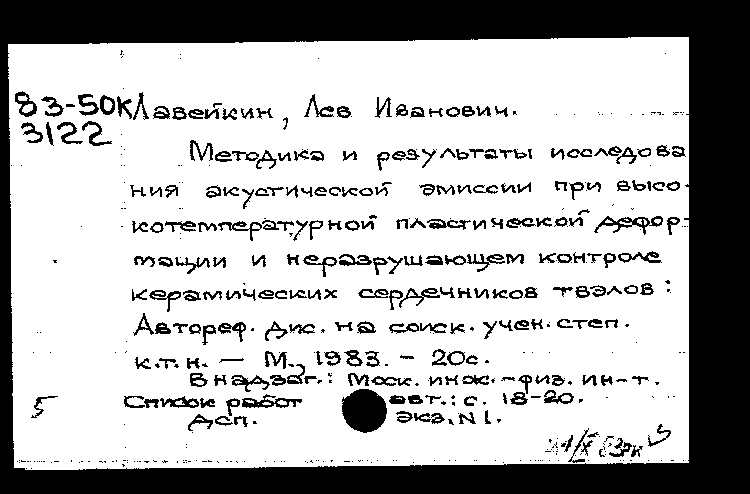 83-50К Лавейкин, Лев Иванович.
3122
Методика и результаты исследова
ния акустической эмиссии при высо-
котемпературной пластической дефор-
мации и неразрушающем контроле
керамических сердечников твэлов:
Автореф. дис. на соиск. учен. степ.
к.т.н. — М., 1983. - 20с.
В надзаг.: Моск. инж.-физ. ин-т.
5 Список работ авт.: с. 18-20.
ДСП. экз. N 1.